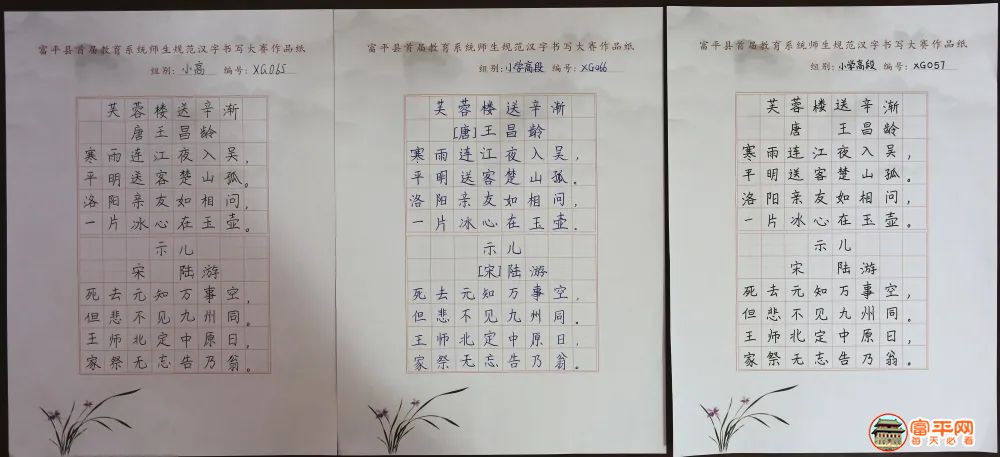 富平县首届教育系统师生规范汉字书写大赛作品纸
组别：小高 编号：XG065
芙蓉楼送辛渐
唐王昌龄
寒雨连江夜入吴，
平明送客楚山孤。
洛阳亲友如相问，
一片冰心在玉壶。
示儿
宋 陆游
死去元知万事空，
但悲不见九州同。
王师北定中原日，
家祭无忘告乃翁。
富平县首届教育系统师生规范汉字书写大赛作品纸
组别：小学高段 编号：XG066
芙蓉楼送辛渐
[唐]王昌龄
寒雨连江夜入吴，
平明送客楚山孤。
洛阳亲友如相问，
一片冰心在玉壶。
示儿
[宋]陆游
死去元知万事空，
但悲不见九州同。
王师北定中原日，
家祭无忘告乃翁。
富平县首届教育系统师生规范汉字书写大赛作品纸
组别：小学高段 编号：XG057
芙蓉楼送辛渐
唐 王昌龄
寒雨连江夜入吴，
平明送客楚山孤。
洛阳亲友如相问，
一片冰心在玉壶。
示儿
宋 陆游
死去元知万事空，
但悲不见九州同。
王师北定中原日，
家祭无忘告乃翁。
富平网
每天必看